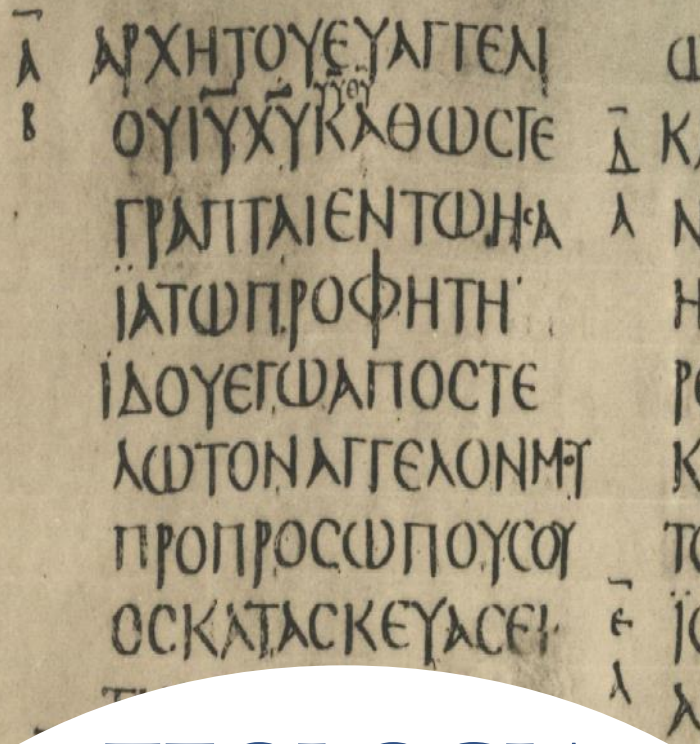 Α̅
Β
ΑΡΧΗΤΟΥΕΥΑΓΓΕΛΙ
Υ̅Υ̅Θ̅Υ̅
ΟΥΙ̅Υ̅Χ̅Υ̅ΚΑΘΩϹΓΕ
ΓΡΑΠΤΑΙΕΝΤΩΗϹΑ
ΪΑΤΩΠΡΟΦΗΤΗ·
ΙΔΟΥΕΓΩΑΠΟϹΤΕ
ΛΩΤΟΝΑΓΓΕΛΟΝΜΟΥ
ΠΡΟΠΡΟϹΩΠΟΥϹΟΥ
ΟϹΚΑΤΑϹΚΕΥΑϹΕΙ
Δ̅
Α
Ε̅
Α